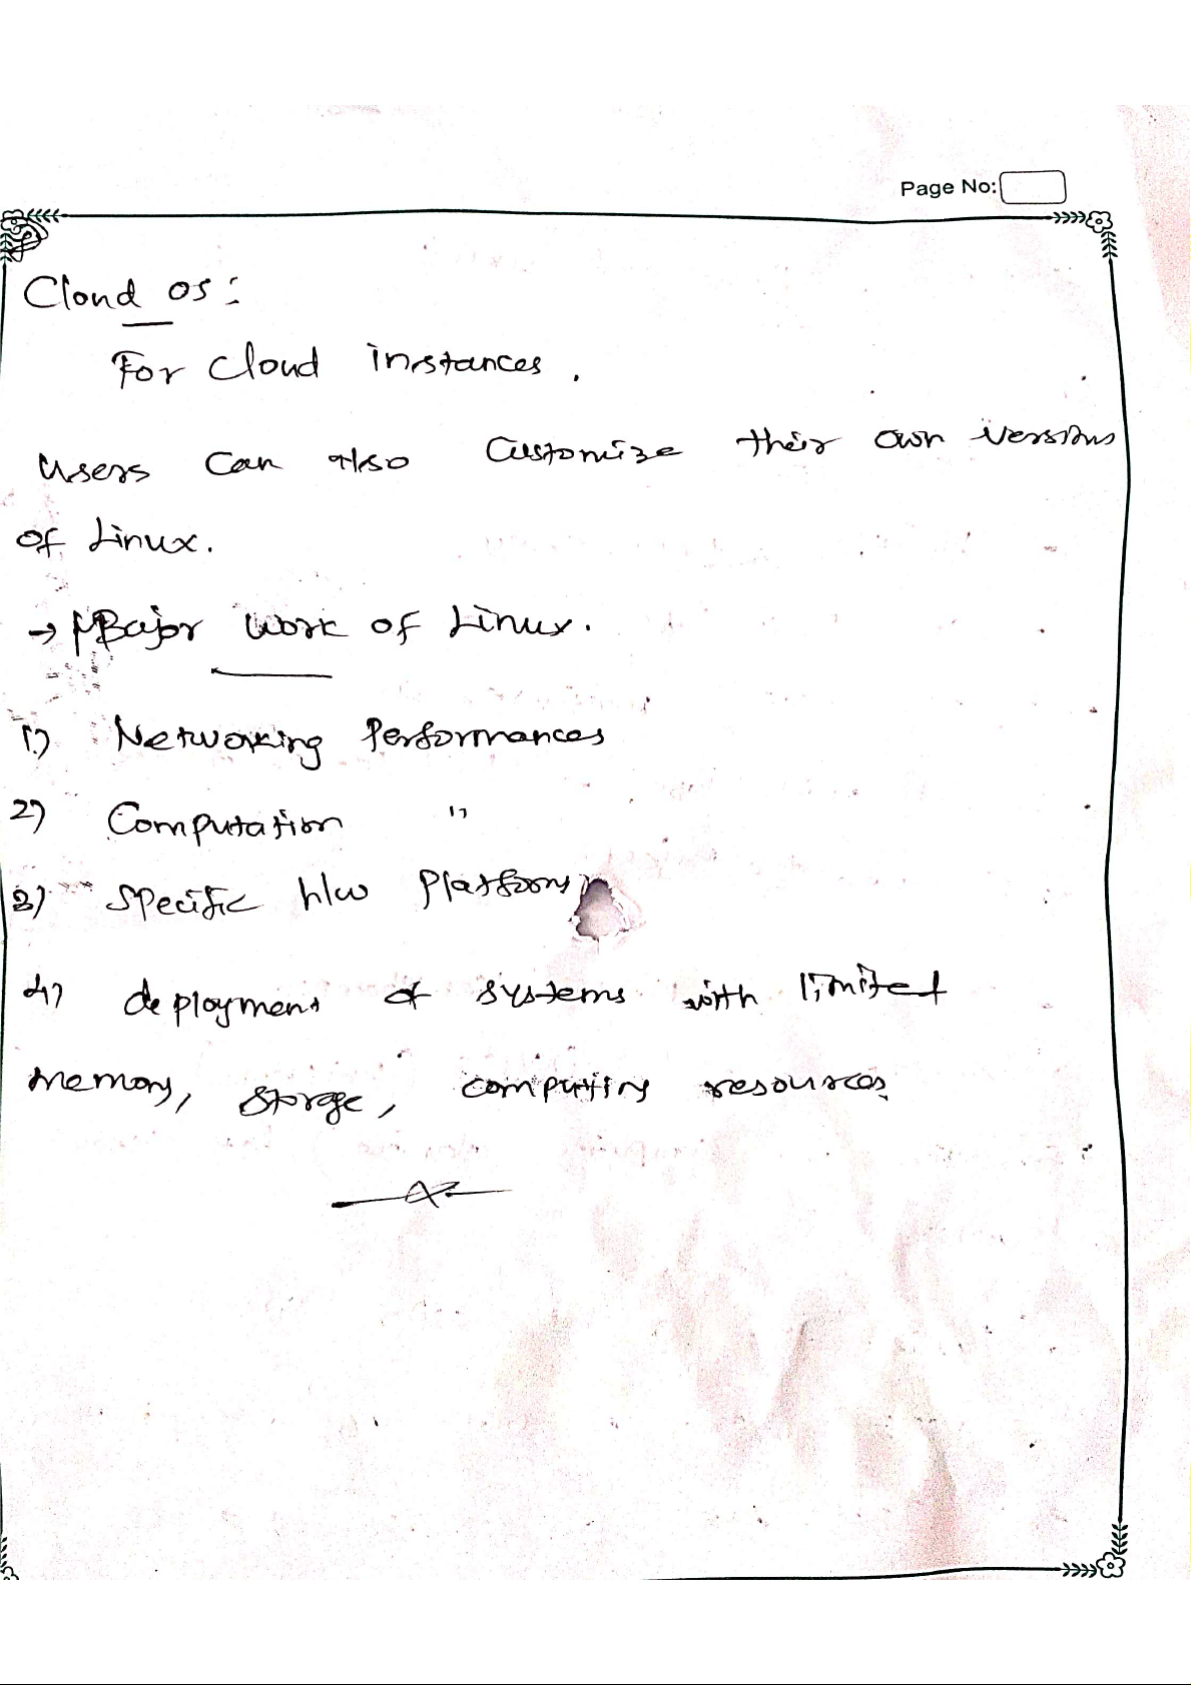 Page No:
Cloud OS:
For Cloud instances.
Users can also Customize their own versions
of Linux.
→ Major work of Linux.
1) Networking Performances
2) Computation "
3) Specific h/w Platforms
4) deployment of systems with limited
memory, storage, computing resources.